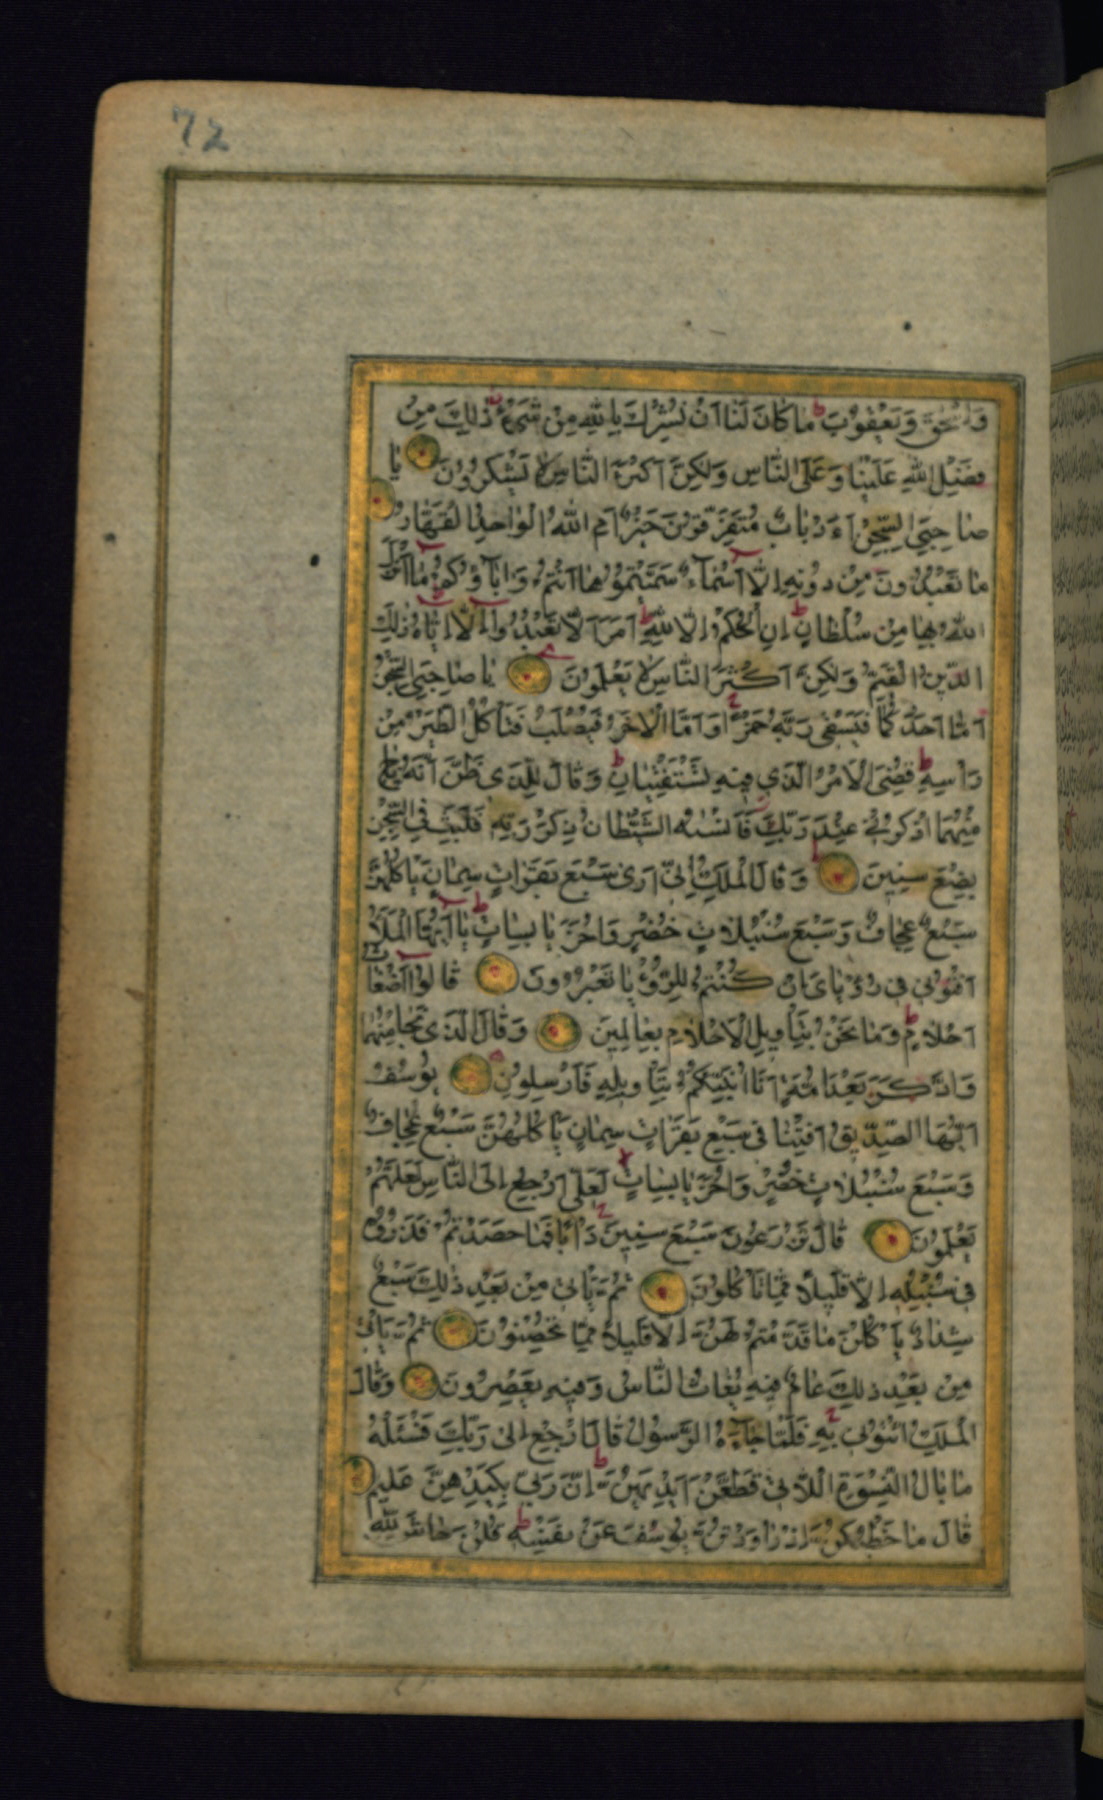 72
وَاِسْحٰقَ وَيَعْقُوبَ مَا كَانَ لَنَا اَنْ نُشْرِكَ بِاللّٰهِ مِنْ شَىْءٍ ذٰلِكَ مِنْ
فَضْلِ اللّٰهِ عَلَيْنَا وَعَلَى النَّاسِ وَلٰكِنَّ اَكْثَرَ النَّاسِ لَا يَشْكُرُونَ يَا
صَاحِبَىِ السِّجْنِ ءَاَرْبَابٌ مُتَفَرِّقُونَ خَيْرٌ اَمِ اللّٰهُ الْوَاحِدُ الْقَهَّارُ
مَا تَعْبُدُونَ مِنْ دُونِهِ اِلَّا اَسْمَاءً سَمَّيْتُمُوهَا اَنْتُمْ وَاٰبَاؤُكُمْ مَا اَنْزَلَ
اللّٰهُ بِهَا مِنْ سُلْطَانٍ اِنِ الْحُكْمُ اِلَّا لِلّٰهِ اَمَرَ اَلَّا تَعْبُدُوا اِلَّا اِيَّاهُ ذٰلِكَ
الدِّينُ الْقَيِّمُ وَلٰكِنَّ اَكْثَرَ النَّاسِ لَا يَعْلَمُونَ يَا صَاحِبَىِ السِّجْنِ
اَمَّا اَحَدُكُمَا فَيَسْقِى رَبَّهُ خَمْرًا وَاَمَّا الْاٰخَرُ فَيُصْلَبُ فَتَأْكُلُ الطَّيْرُ مِنْ
رَأْسِهِ قُضِىَ الْاَمْرُ الَّذِى فِيهِ تَسْتَفْتِيَانِ وَقَالَ لِلَّذِى ظَنَّ اَنَّهُ نَاجٍ
مِنْهُمَا اذْكُرْنِى عِنْدَ رَبِّكَ فَاَنْسٰيهُ الشَّيْطَانُ ذِكْرَ رَبِّهِ فَلَبِثَ فِى السِّجْنِ
بِضْعَ سِنِينَ وَقَالَ الْمَلِكُ اِنِّى اَرٰى سَبْعَ بَقَرَاتٍ سِمَانٍ يَأْكُلُهُنَّ
سَبْعٌ عِجَافٌ وَسَبْعَ سُنْبُلَاتٍ خُضْرٍ وَاُخَرَ يَابِسَاتٍ يَا اَيُّهَا الْمَلَأُ
اَفْتُونِى فِى رُؤْيَاىَ اِنْ كُنْتُمْ لِلرُّؤْيَا تَعْبُرُونَ قَالُوا اَضْغَاثُ
اَحْلَامٍ وَمَا نَحْنُ بِتَأْوِيلِ الْاَحْلَامِ بِعَالِمِينَ وَقَالَ الَّذِى نَجَا مِنْهُمَا
وَادَّكَرَ بَعْدَ اُمَّةٍ اَنَا اُنَبِّئُكُمْ بِتَأْوِيلِهِ فَاَرْسِلُونِ يُوسُفُ
اَيُّهَا الصِّدِّيقُ اَفْتِنَا فِى سَبْعِ بَقَرَاتٍ سِمَانٍ يَأْكُلُهُنَّ سَبْعٌ عِجَافٌ
وَسَبْعِ سُنْبُلَاتٍ خُضْرٍ وَاُخَرَ يَابِسَاتٍ لَعَلِّى اَرْجِعُ اِلَى النَّاسِ لَعَلَّهُمْ
يَعْلَمُونَ قَالَ تَزْرَعُونَ سَبْعَ سِنِينَ دَأَبًا فَمَا حَصَدْتُمْ فَذَرُوهُ
فِى سُنْبُلِهِ اِلَّا قَلِيلًا مِمَّا تَأْكُلُونَ ثُمَّ يَأْتِى مِنْ بَعْدِ ذٰلِكَ سَبْعٌ
شِدَادٌ يَأْكُلْنَ مَا قَدَّمْتُمْ لَهُنَّ اِلَّا قَلِيلًا مِمَّا تُحْصِنُونَ ثُمَّ يَأْتِى
مِنْ بَعْدِ ذٰلِكَ عَامٌ فِيهِ يُغَاثُ النَّاسُ وَفِيهِ يَعْصِرُونَ وَقَالَ
الْمَلِكُ ائْتُونِى بِهِ فَلَمَّا جَاءَهُ الرَّسُولُ قَالَ ارْجِعْ اِلٰى رَبِّكَ فَسْئَلْهُ
مَا بَالُ النِّسْوَةِ اللَّاتِى قَطَّعْنَ اَيْدِيَهُنَّ اِنَّ رَبِّى بِكَيْدِهِنَّ عَلِيمٌ
قَالَ مَا خَطْبُكُنَّ اِذْ رَاوَدْتُنَّ يُوسُفَ عَنْ نَفْسِهِ قُلْنَ حَاشَ لِلّٰهِ